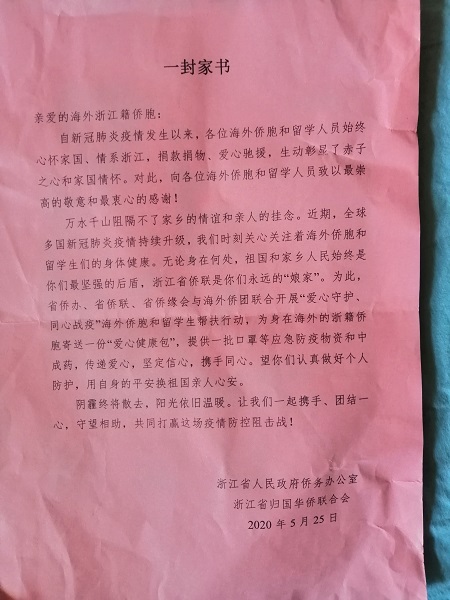 一封家书
亲爱的海外浙江籍侨胞：
自新冠肺炎疫情发生以来，各位海外侨胞和留学人员始终
心怀家国、情系浙江，捐款捐物、爱心驰援，生动彰显了赤子
之心和家国情怀。对此，向各位海外侨胞和留学人员致以最崇
高的敬意和最衷心的感谢！
万水千山阻隔不了家乡的情谊和亲人的挂念。近期，全球
多国新冠肺炎疫情持续升级，我们时刻关心关注着海外侨胞和
留学生们的身体健康。无论身在何处，祖国和家乡人民始终是
你们最坚强的后盾，浙江省侨联是你们永远的“娘家”。为此，
省侨办、省侨联、省侨缘会与海外侨团联合开展“爱心守护、
同心战疫”海外侨胞和留学生帮扶行动，为身在海外的浙籍侨
胞寄送一份“爱心健康包”，提供一批口罩等应急防疫物资和中
成药，传递爱心，坚定信心，携手同心。望你们认真做好个人
防护，用自身的平安换祖国亲人心安。
阴霾终将散去，阳光依旧温暖。让我们一起携手、团结一
心，守望相助，共同打赢这场疫情防控阻击战！
浙江省人民政府侨务办公室
浙江省归国华侨联合会
2020 年 5 月 25 日